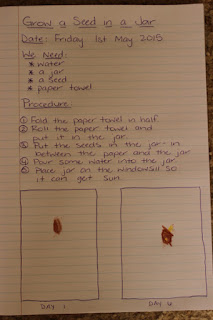 Grow a Seed in a Jar
Date: Friday 1st May 2015
We Need:
* water
* a jar
* a seed
* paper towel
Procedure:
① Fold the paper towel in half.
② Roll the paper towel and
put it in the jar.
③ Put the seeds in the jar in
between the paper and the jar
④ Pour some water into the jar.
⑤ Place jar on the windowsill so
it can get sun.
DAY 1
DAY